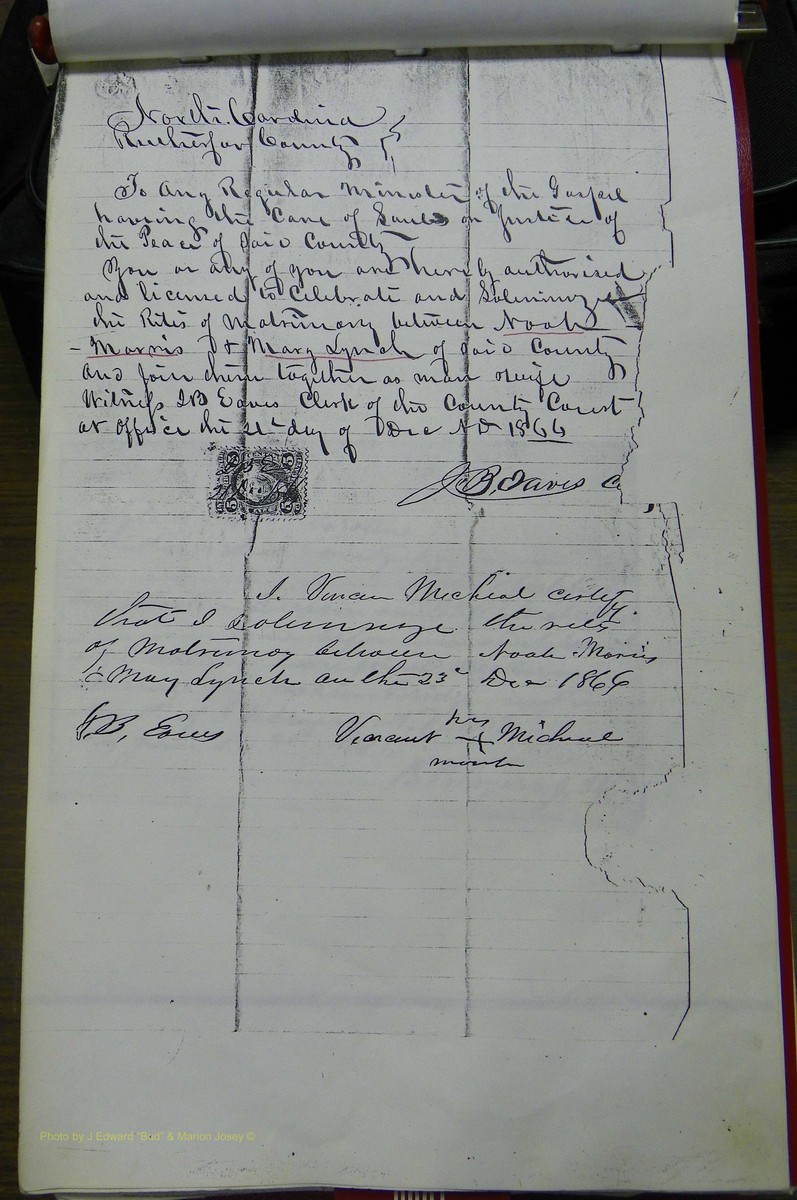 North Carolina
Rutherfor County
To Any Regular Minister of the Gospel
having the Care of Souls or Justice of
the Peace of Said County
You or any of you are hereby authorised
and licensed to Celebrate and Solemnize
the Rites of Matrimony between Noah
Morris & Mary Lynch of Said County
And join them together as man & wife
Witness J B Eaves Clerk of the County Court
at Office the 21st day of Dec AD 1866
J. B. Eaves C
I. Micheal certify
that I solemnize the rites
of Matrimoy between Noah Morris
& Mary Lynch on the 23d Dec 1866
J.B. Eaves
his
X Micheal
mark
Photo by J Edward "Bud" & Marion Josey ©